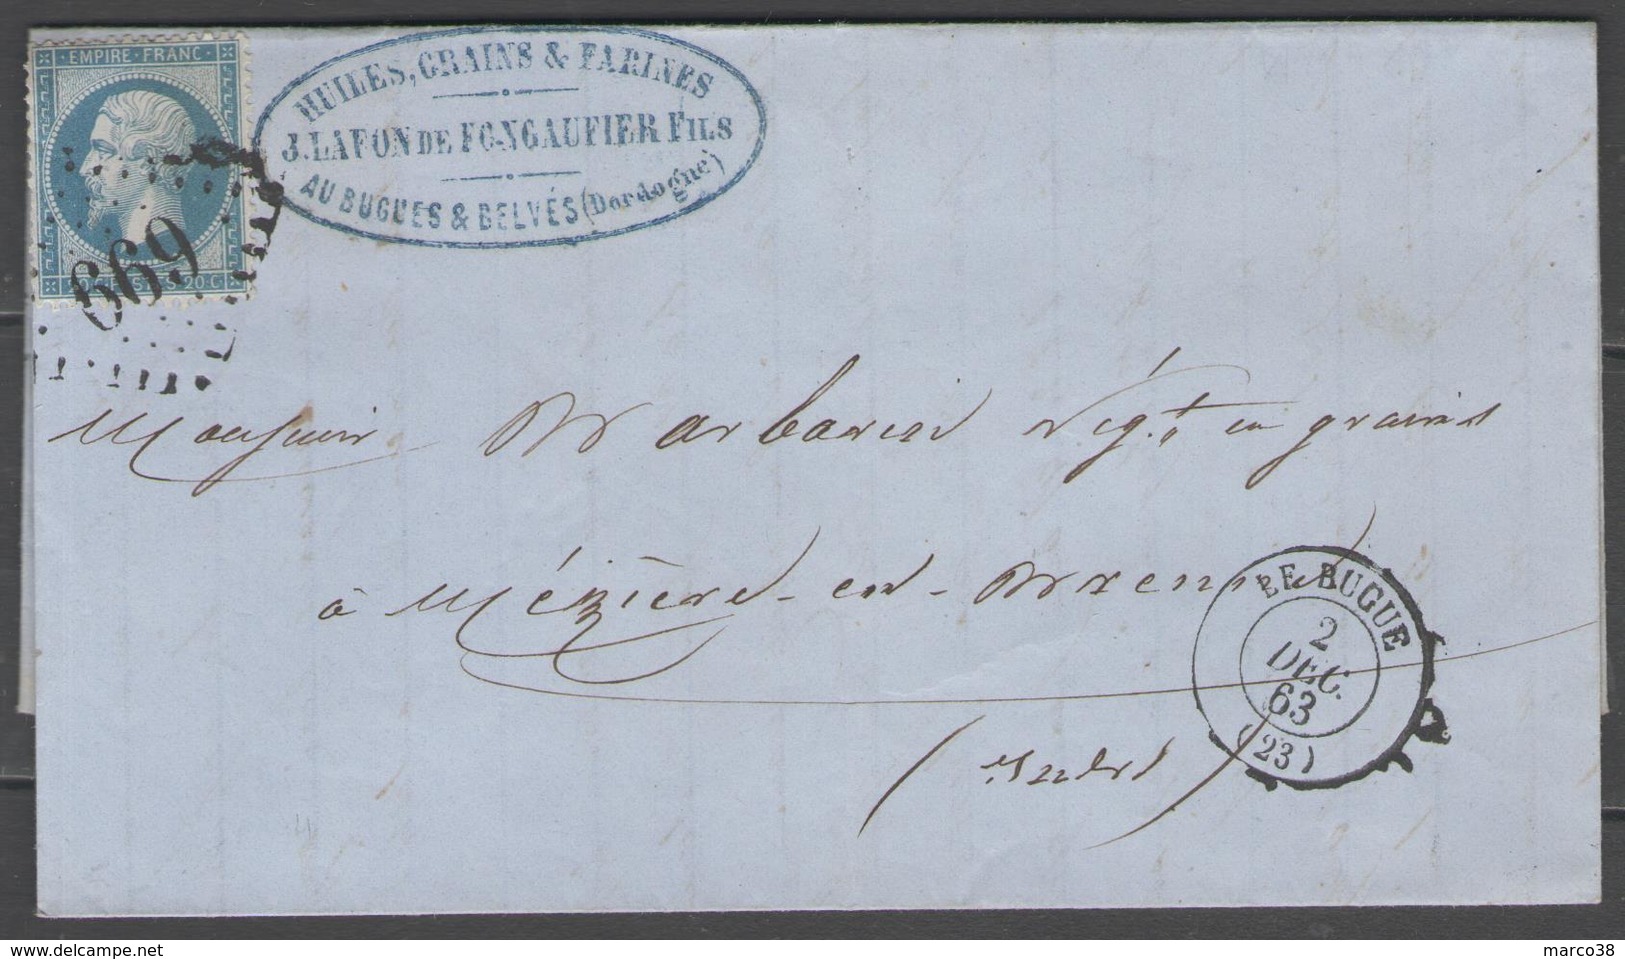 EMPIRE·FRANC
20 C
669
HUILES, GRAINS & FARINES
J. LAFON DE FONGAUFIER FILS
AU BUGUES & BELVÈS (Dordogne)
Monsieur Marbarin Nég.t en grains
à Mézières-en-Brenne
(Indre)
LE BUGUE
2
DEC.
63
(23)
delcampe.net
marco38